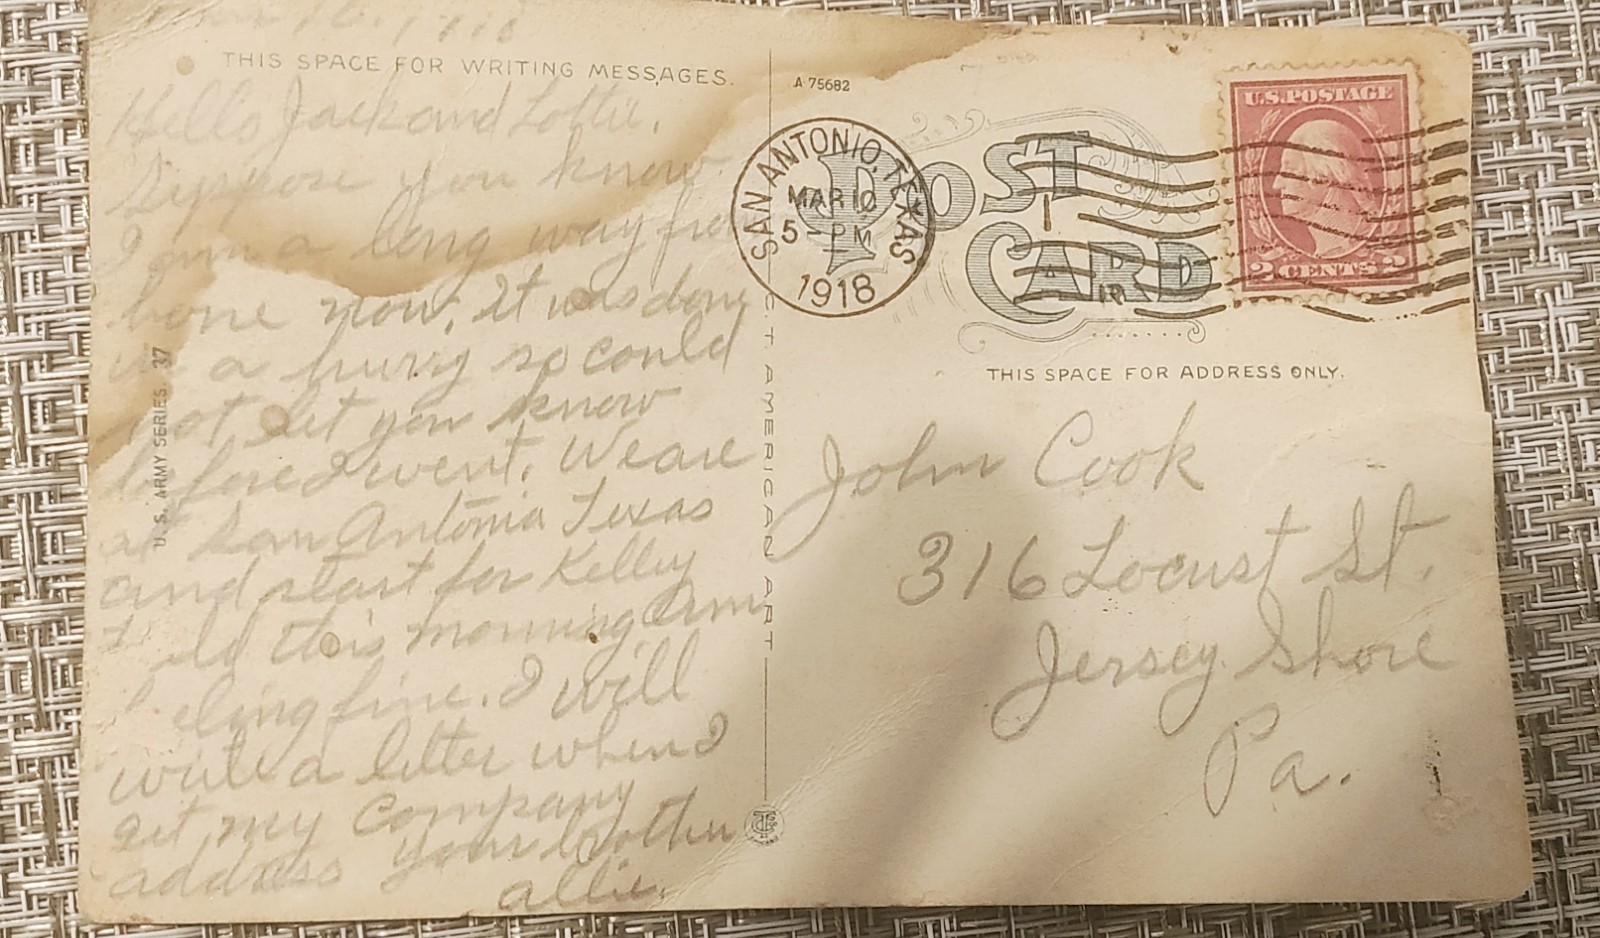 1918
THIS SPACE FOR WRITING MESSAGES.
Hello Jack and Lottie,
Suppose you know
I am a long way from
home now, It was done
in a hurry so could
not let you know
before I went. We are
at San Antonia Texas
and start for Kelley
this morning Am
fine. I will
write a letter when I
get my Company
address your brother
allie.
U.S. ARMY SERIES. 37
A-75682
SAN ANTONIO, TEXAS
MAR 10
5 - PM
1918
POST
CARD
U.S. POSTAGE
2 CENTS 2
AMERICAN ART
THIS SPACE FOR ADDRESS ONLY.
John Cook
316 Locust St.
Jersey Shore
Pa.